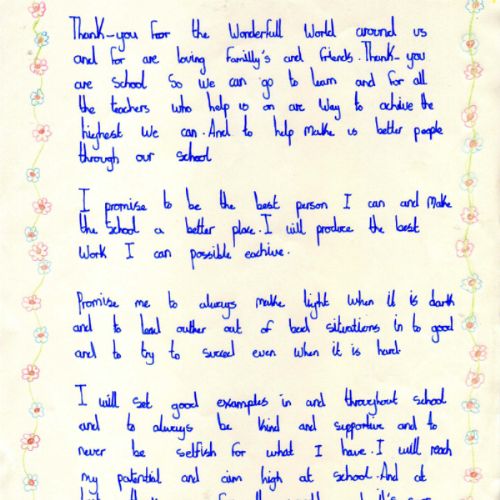 Thank-you for the Wonderfull World around us
and for are loving Familly's and friends. Thank-you
are School So We can go to learn and for all
the teachers who help us on are Way to achive the
highest We can. And to help make us better people
through our school
I promise to be the best person I can and Make
the School a better place. I will produce the best
Work I can possible eachive.
Promise me to always make light when it is dark
and to lead outher out of bad situations in to good
and to try to succed even when it is hard
I will set good examples in and throughout school
and to always be kind and supportive and to
never be selfish for what I have. I will reach
my potential and aim high at school. And at